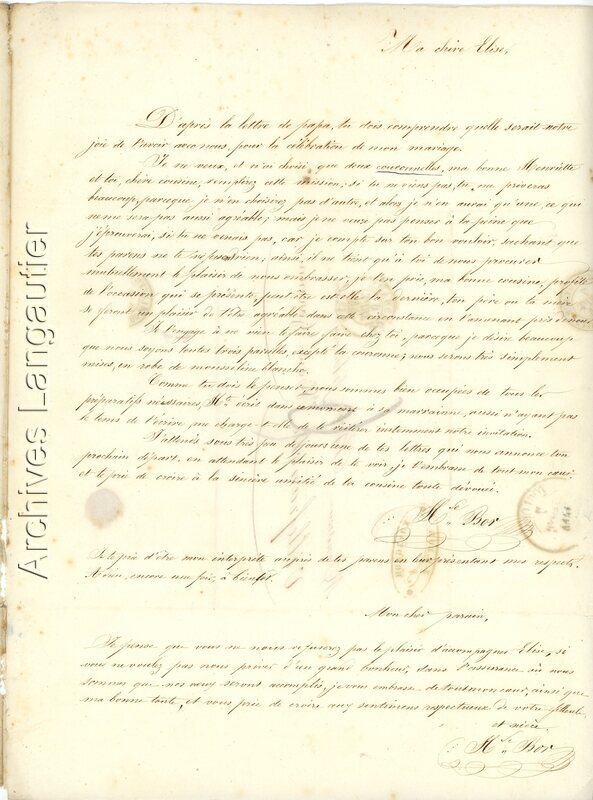 Ma chère Elise,
D'après la lettre de papa, tu dois comprendre quelle serait notre
joie de t'avoir avec nous, pour la célébration de mon mariage.
Je ne veux, et n'ai choisi, que deux couronnelles, ma bonne Henriette
et toi, chère cousine, remplirez cette mission; si tu ne viens pas, tu me priveras
beaucoup, parceque je n'en choisirez pas d'autre, et alors je n'en aurai qu'une, ce qui
ne me sera pas aussi agréable; mais je ne veux pas penser à la peine que
j'éprouverai, si tu ne venais pas, car je compte sur ton bon vouloir, sachant que
tes parens ne te refusent rien; ainsi, il ne tient qu'à toi de nous procurer
mutuellement le plaisir de nous embrasser, je t'en prie, ma bonne cousine, profite
de l'occasion qui se présente, peut être est elle la dernière, ton père ou ta mère
se feront un plaisir de t'être agréable dans cette circonstance en t'amenant près de nous.
Je t'engage à ne rien te faire faire chez toi, parceque je désire beaucoup
que nous soyons toutes trois pareilles, excepté la couronne; nous serons très simplement
mises, en robe de mousseline blanche.
Comme tu dois le penser nous sommes bien occupées de tous les
préparatifs nécessaires, Hte écrit dans ce moment à sa marraine, aussi n'ayant pas
le tems de t'écrire me charge-t-elle de te réitérer instamment notre invitation.
J'attends sous très peu de jours une de tes lettres qui nous annonce ton
prochain départ. en attendant le plaisir de te voir, je t'embrasse de tout mon cœur
et te prie de croire à la sincère amitié de ta cousine toute dévouée.
Hte Bor
Je te prie d'être mon interprète auprès de tes parens en leur présentant mes respects.
Adieu, encore une fois, à bientôt.
Mon cher parrain,
Je pense que vous ne nous refuserez pas le plaisir d'accompagner Elise, si
vous ne voulez pas nous priver d'un grand bonheur, dans l'assurance où nous
sommes que nos vœux seront accomplis, je vous embrasse de tout mon cœur, ainsi que
ma bonne tante, et vous prie de croire aux sentimens respectueux de votre filleule
et nièce.
Hte Bor
Archives Langautier